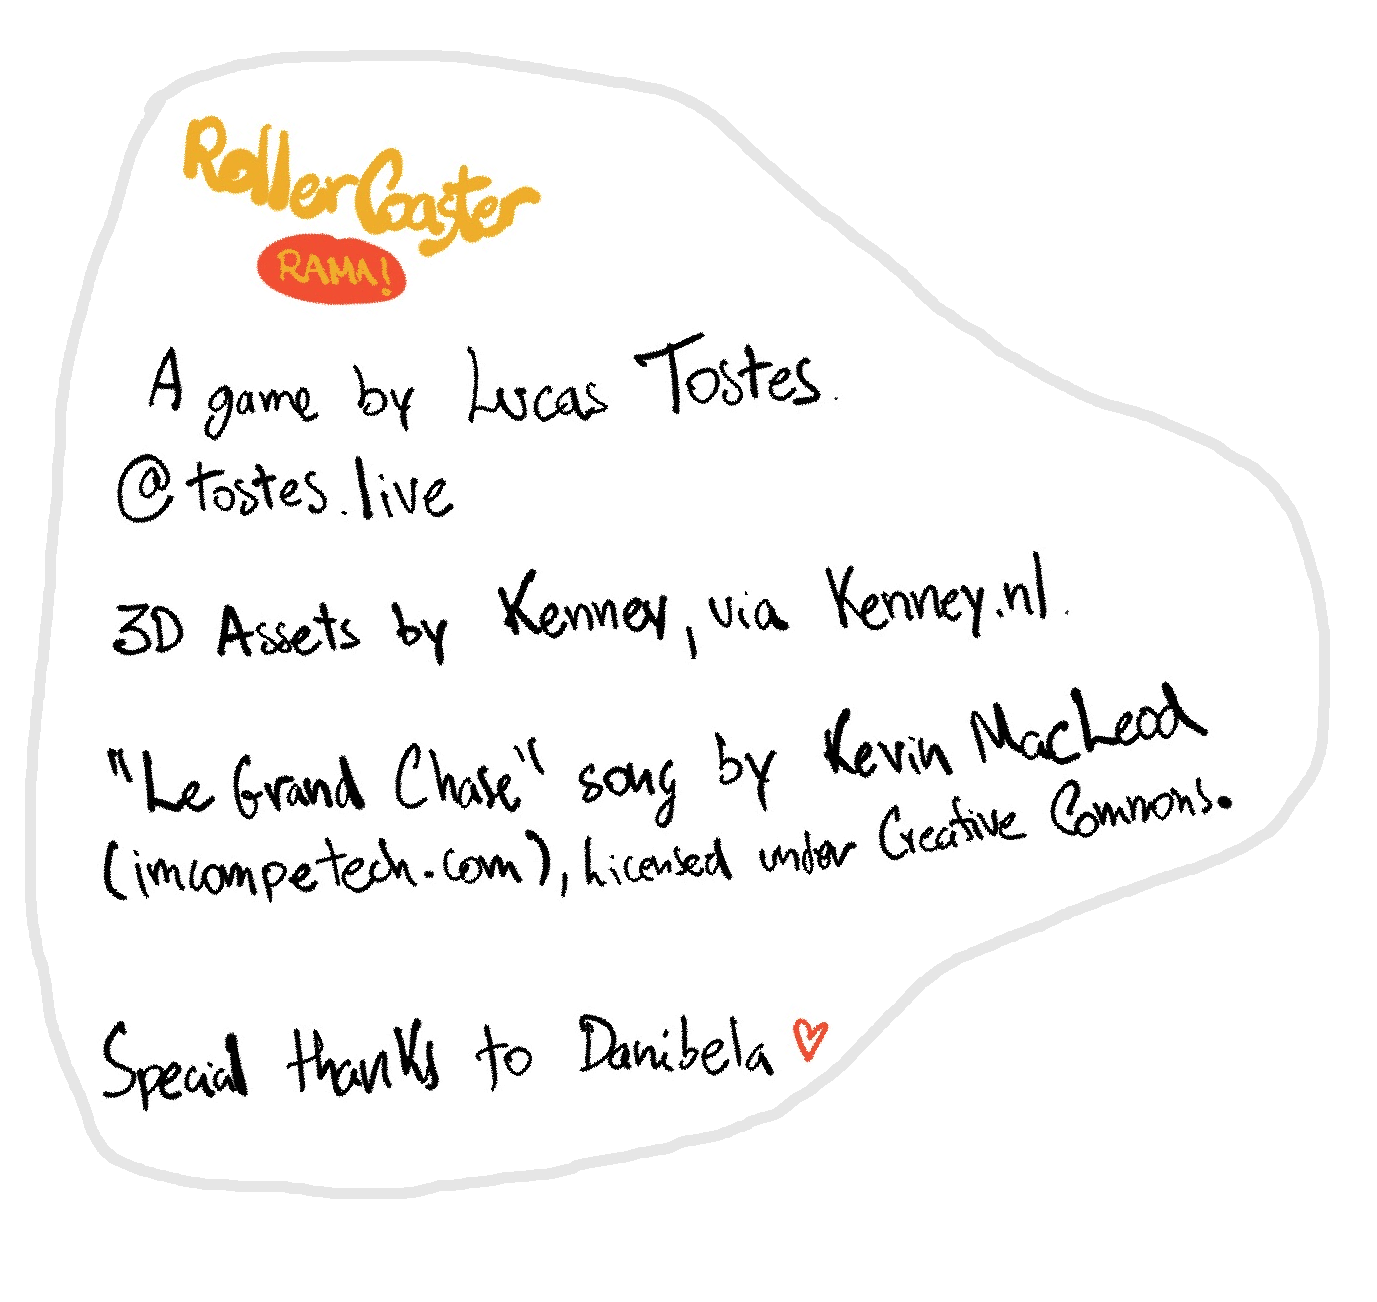 RollerCoaster
RAMA!
A game by Lucas Tostes.
@tostes.live
3D Assets by Kenney, via Kenney.nl.
"Le Grand Chase" song by Kevin MacLeod
(imcompetech.com), Licensed under Creative Commons.
Special thanks to Danibela